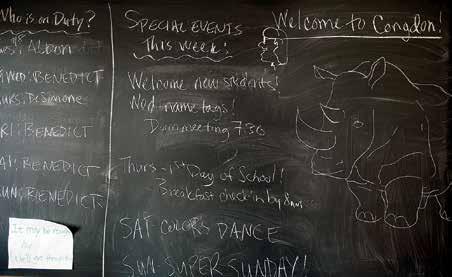 Who is on Duty?
Albon
Wed: BENEDICT
urs: DeSimone
RI: BENEDICT
AT: BENEDICT
SUN: BENEDICT
It may be
SPECIAL EVENTS
This week:
Welcome new students!
Need name tags!
Dorm meeting 7:30
Thurs - 1st Day of School!
Breakfast check in by
SAT COLORS DANCE
SUN SUPER SUNDAY!
Welcome to Congdon!